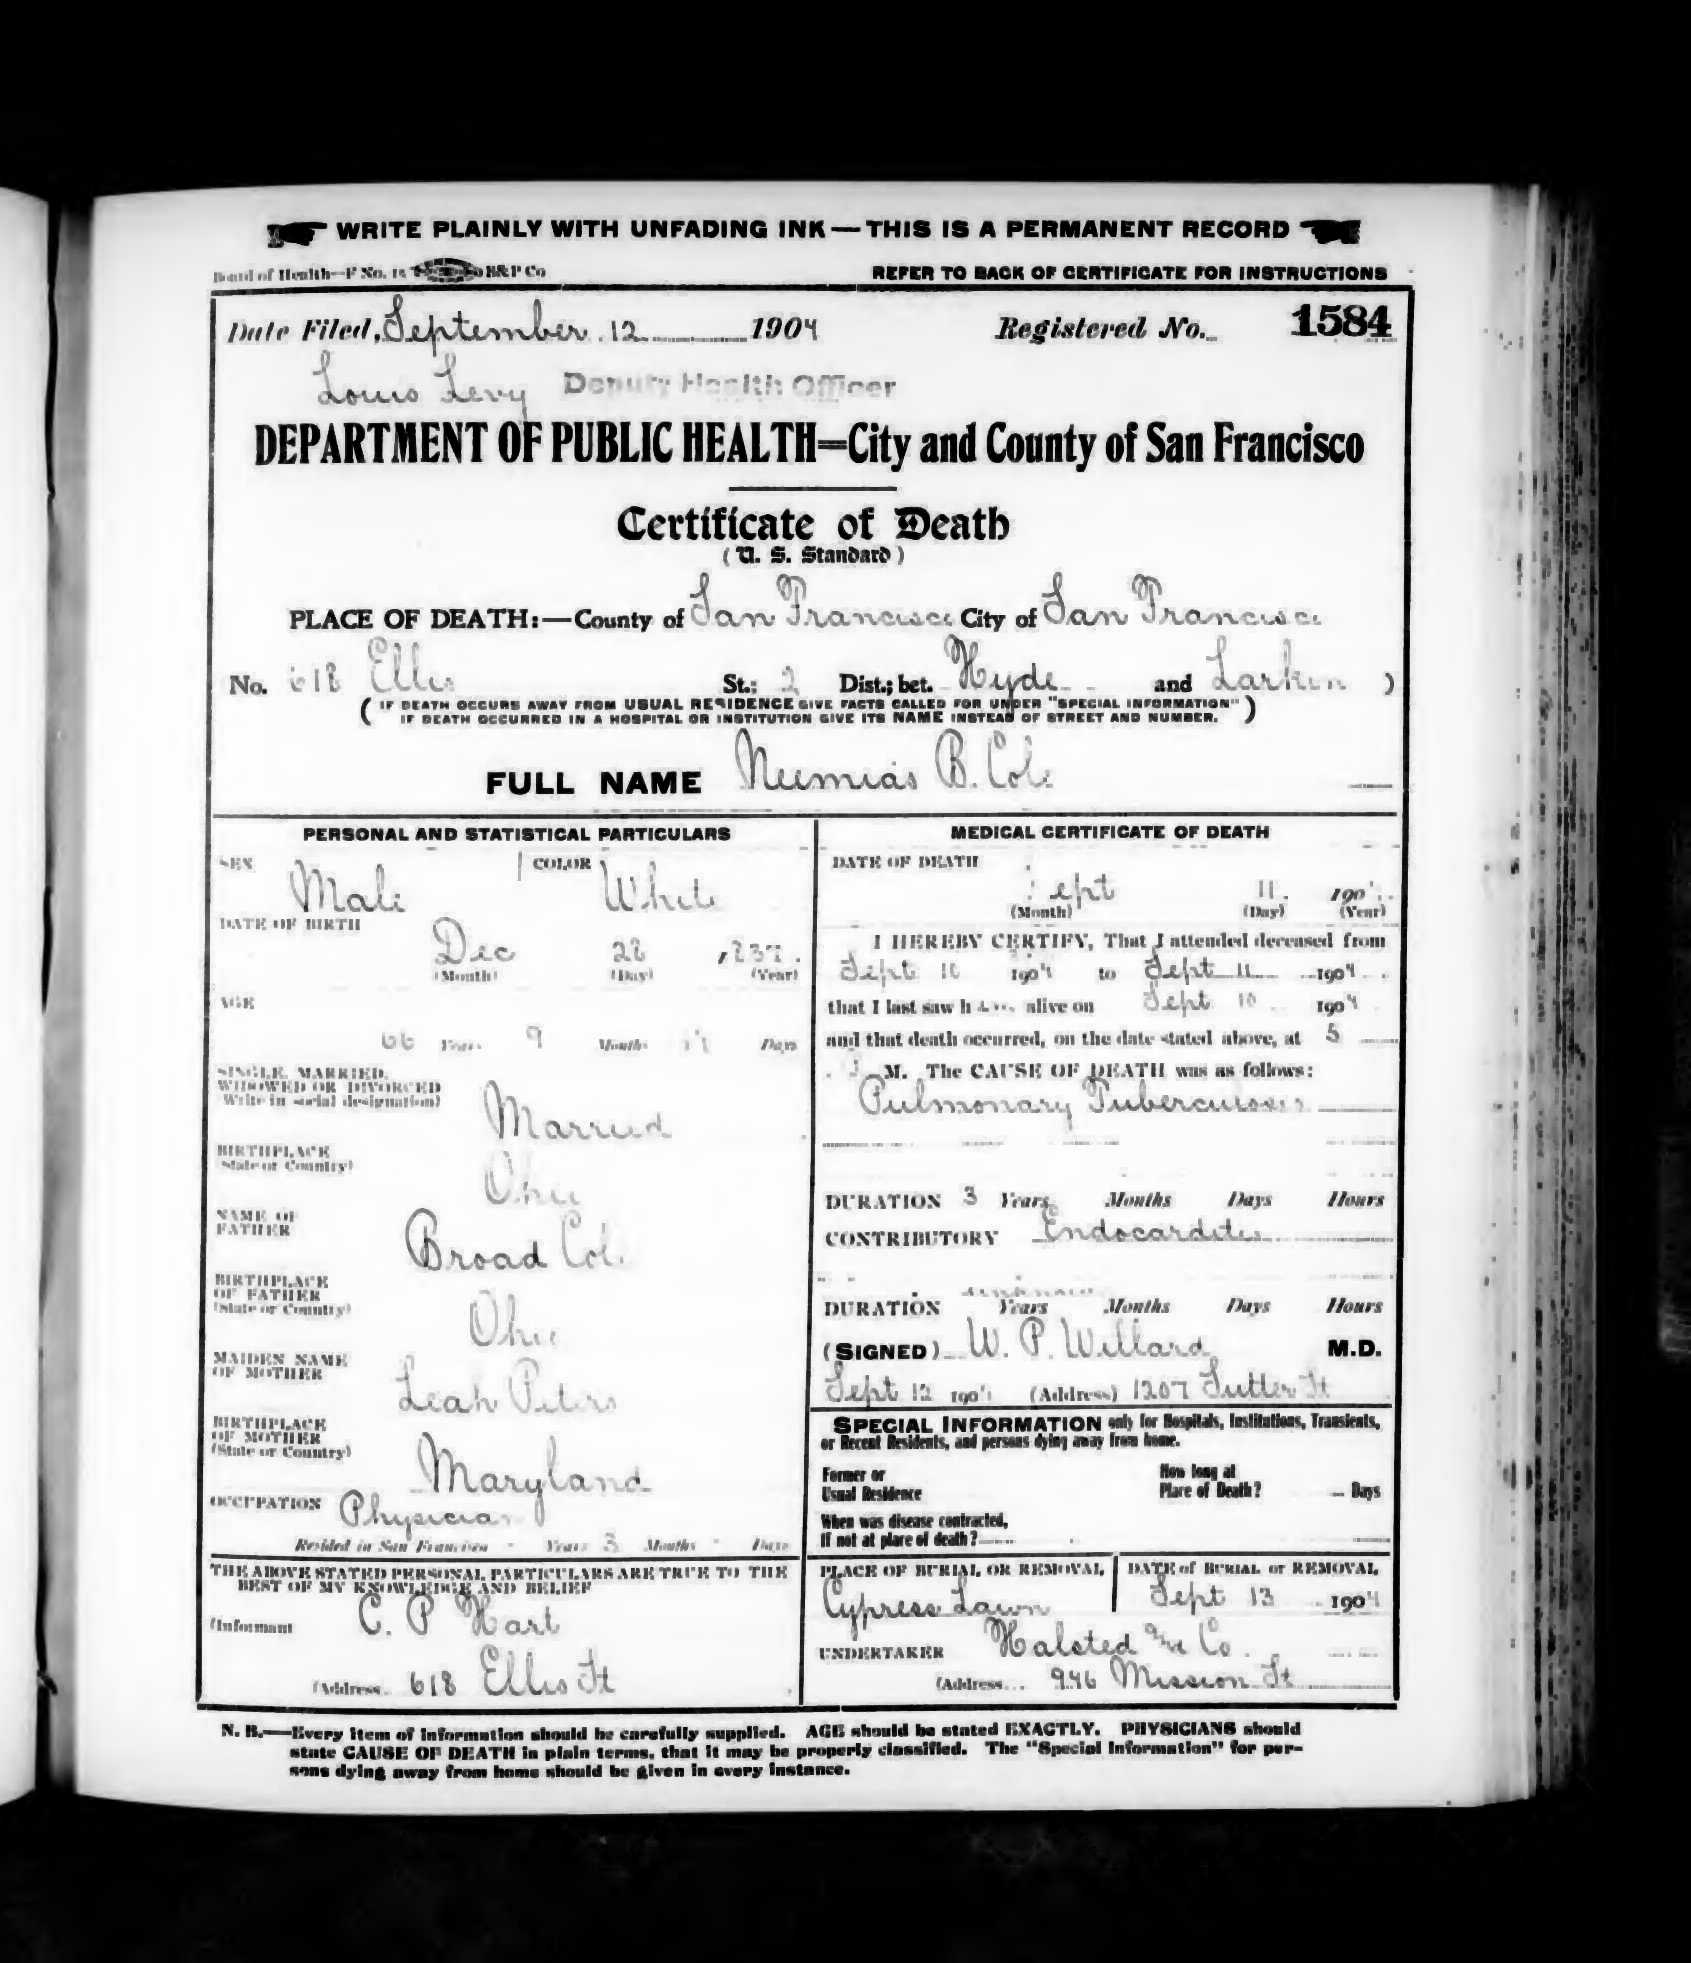 WRITE PLAINLY WITH UNFADING INK — THIS IS A PERMANENT RECORD
Board of Health—F No. 15 H&P Co
REFER TO BACK OF CERTIFICATE FOR INSTRUCTIONS
Date Filed, September 12 1904 Registered No. 1584
Louis Levy Deputy Health Officer
DEPARTMENT OF PUBLIC HEALTH=City and County of San Francisco
Certificate of Death
(U. S. Standard)
PLACE OF DEATH:—County of San Francisco City of San Francisco
No. 618 Ellis St.; 2 Dist.; bet. Hyde and Larkin )
( IF DEATH OCCURS AWAY FROM USUAL RESIDENCE GIVE FACTS CALLED FOR UNDER "SPECIAL INFORMATION" )
IF DEATH OCCURRED IN A HOSPITAL OR INSTITUTION GIVE ITS NAME INSTEAD OF STREET AND NUMBER.
FULL NAME B. Cole
PERSONAL AND STATISTICAL PARTICULARS
SEX Male COLOR White
DATE OF BIRTH
Dec 28 , 837
(Month) (Day) (Year)
AGE
66 Years 9 Months Days
SINGLE, MARRIED,
WIDOWED OR DIVORCED
(Write in social designation)
Married
BIRTHPLACE
(State or Country)
Ohio
NAME OF
FATHER
Broad Cole
BIRTHPLACE
OF FATHER
(State or Country)
Ohio
MAIDEN NAME
OF MOTHER
Leah Peters
BIRTHPLACE
OF MOTHER
(State or Country)
Maryland
OCCUPATION Physician
Resided in San Francisco - Years 3 Months - Days
THE ABOVE STATED PERSONAL PARTICULARS ARE TRUE TO THE
BEST OF MY KNOWLEDGE AND BELIEF
(Informant C. P. Hart
(Address 618 Ellis St
MEDICAL CERTIFICATE OF DEATH
DATE OF DEATH
Sept 11. 190
(Month) (Day) (Year)
I HEREBY CERTIFY, That I attended deceased from
Sept 10 1904 to Sept 11 1904
that I last saw h im alive on Sept 10 1904
and that death occurred, on the date stated above, at 5
M. The CAUSE OF DEATH was as follows:
Pulmonary Tuberculosis
DURATION 3 Years Months Days Hours
CONTRIBUTORY Endocarditis
unknown
DURATION Years Months Days Hours
(SIGNED) W. P. Willard M.D.
Sept 12 1904 (Address) 1207 Sutter St
SPECIAL INFORMATION only for Hospitals, Institutions, Transients,
or Recent Residents, and persons dying away from home.
Former or
Usual Residence
How long at
Place of Death? Days
When was disease contracted,
If not at place of death?
PLACE OF BURIAL OR REMOVAL
Cypress Lawn
DATE of BURIAL or REMOVAL
Sept 13 1904
UNDERTAKER Halsted and Co
(Address 946 Mission St
N. B.—Every item of information should be carefully supplied. AGE should be stated EXACTLY. PHYSICIANS should
state CAUSE OF DEATH in plain terms, that it may be properly classified. The "Special Information" for per-
sons dying away from home should be given in every instance.